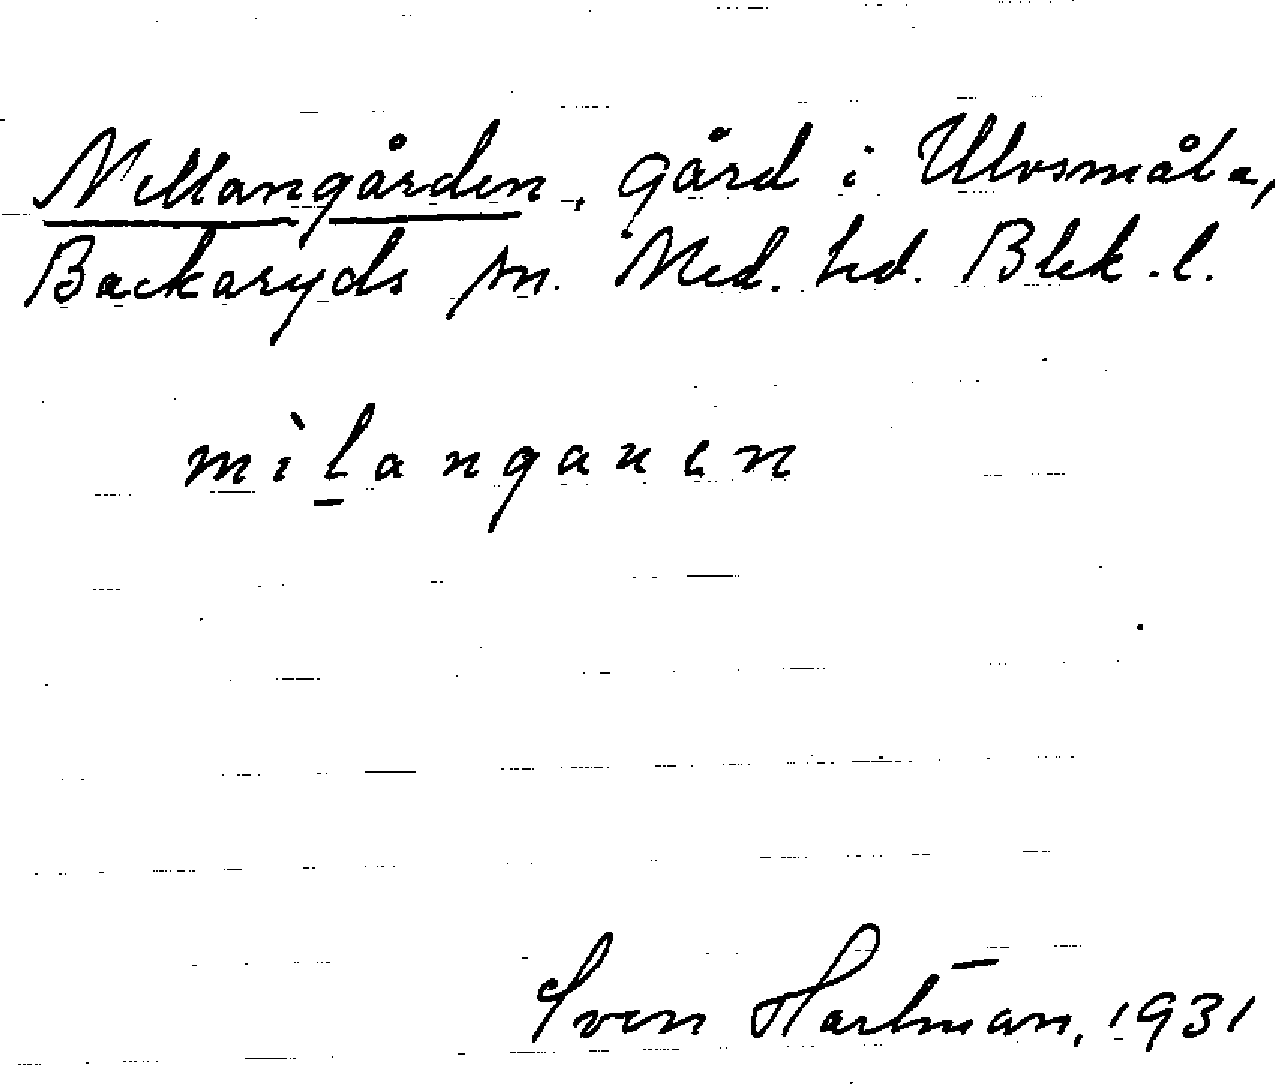 Mellangården, gård i Ulvsmåla,
Backaryds sn. Med. hd. Blek. l.
mìlangauen
Sven Hartman, 1931